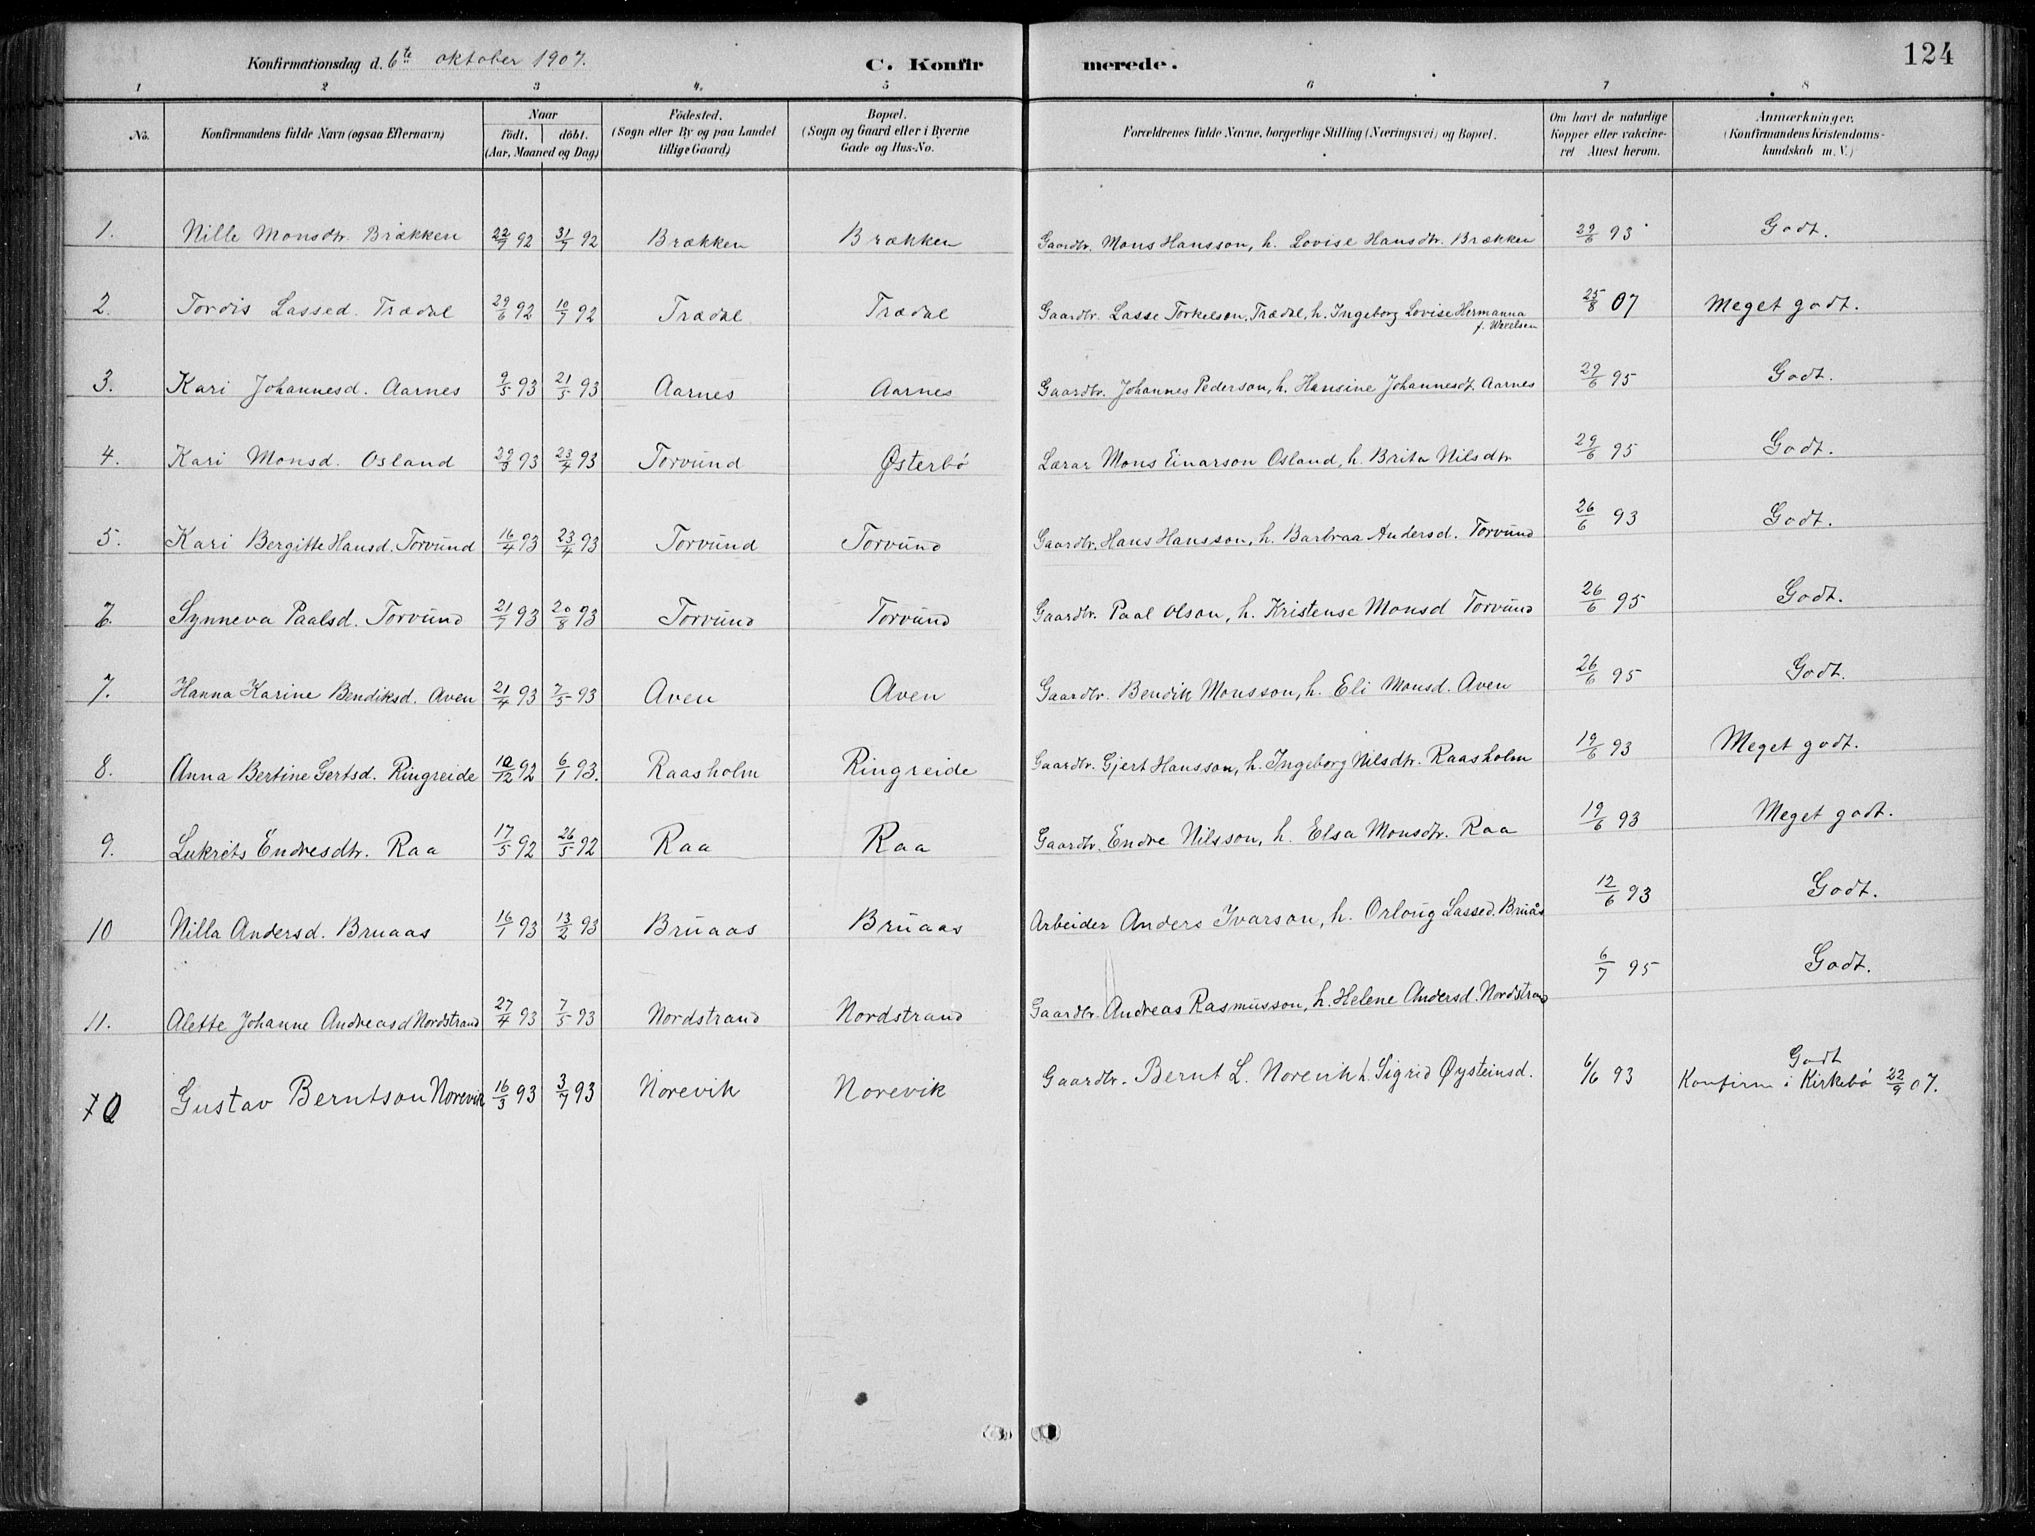 124
Konfirmationsdag d. 6te oktober 1907.
C. Konfirmerede.
1 2 3 4. 5 6 7 8
No. Konfirmandens fulde Navn (ogsaa Efternavn) Naar födt. döbt. (Aar, Maaned og Dag) Födested. (Sogn eller By og paa Landet tillige Gaard) Bopæl. (Sogn og Gaard eller i Byerne Gade og Hus-No. Forældrenes fulde Navne, borgerlige Stilling (Næringsvei) og Bopæl. Om havt de naturlige Kopper eller vakcineret Attest herom. Anmærkninger, (Konfirmandens Kristendomskundskab m. V.)
1. Nille Monsdtr. Brækken 22/7 92 31/7 92 Brækken Brækken Gaardbr. Mons Hansson, h. Lovise Hansdtr. Brækken 29/6 93 Godt.
2. Tordis Lassed. Trædal 29/6 92 10/7 92 Trædal Trædal Gaardbr. Lasse Torkelson, Trædal, h. Ingeborg Lovise Hermanna 25/8 07 Meget godt.
3. Kari Johannesd. Aarnes 9/5 93 21/5 93 Aarnes Aarnes Gaardbr. Johannes Pederson, h. Hansine Johannesdt. Aarnes 29/6 95 Godt.
4. Kari Monsd. Osland 29/3 93 23/4 93 Torvund Østerbö Lærar Mons Einarson Osland, h. Brita Nilsdtr 29/6 95 Godt.
5. Kari Bergitte Hansd. Torvund 16/4 93 23/4 93 Torvund Torvund Gaardbr. Hans Hansson, h. Barbraa Andersd. Torvund 26/6 93 Godt.
6. Synneva Paalsd. Torvund 21/7 93 20/8 93 Torvund Torvund Gaardbr. Paal Olson, h. Kristense Monsd Torvund 26/6 95 Godt.
7. Hanna Karine Bendiksd. Aven 21/4 93 7/5 93 Aven Aven Gaardbr. Bendik Monsson, h. Eli Monsd. Aven 26/6 95 Godt.
8. Anna Bertine Gertsd. Ringreide 10/12 92 6/1 93. Raasholm Ringreide Gaardbr. Gjert Hansson, h. Ingeborg Nilsdtr. Raasholm 19/6 93 Meget godt.
9. Lukrets Endresdtr. Raa 17/5 92 26/5 92 Raa Raa Gaardbr. Endre Nilsson, h. Elsa Monsdtr. Raa 19/6 93 Meget godt.
10 Nilla Andersd. Bruaas 16/1 93 13/2 93 Bruaas Bruaas Arbeider Anders Ivarson, h. Orloug Lassed. Bruås 12/6 93 Godt.
11. Alette Johanne Andreasd Nordstrand 27/4 93 7/5 93 Nordstrand Nordstrand Gaardbr. Andreas Rasmusson, h. Helene Andersd. Nordstrand 6/7 95 Godt.
Gustav Berntson Norevik 16/3 93 3/7 93 Norevik Norevik Gaardbr. Bernt L. Norevik h. Sigrid Øysteinsd. 6/6 93 Godt
Konfirm i Kirkebö 22/9 07.